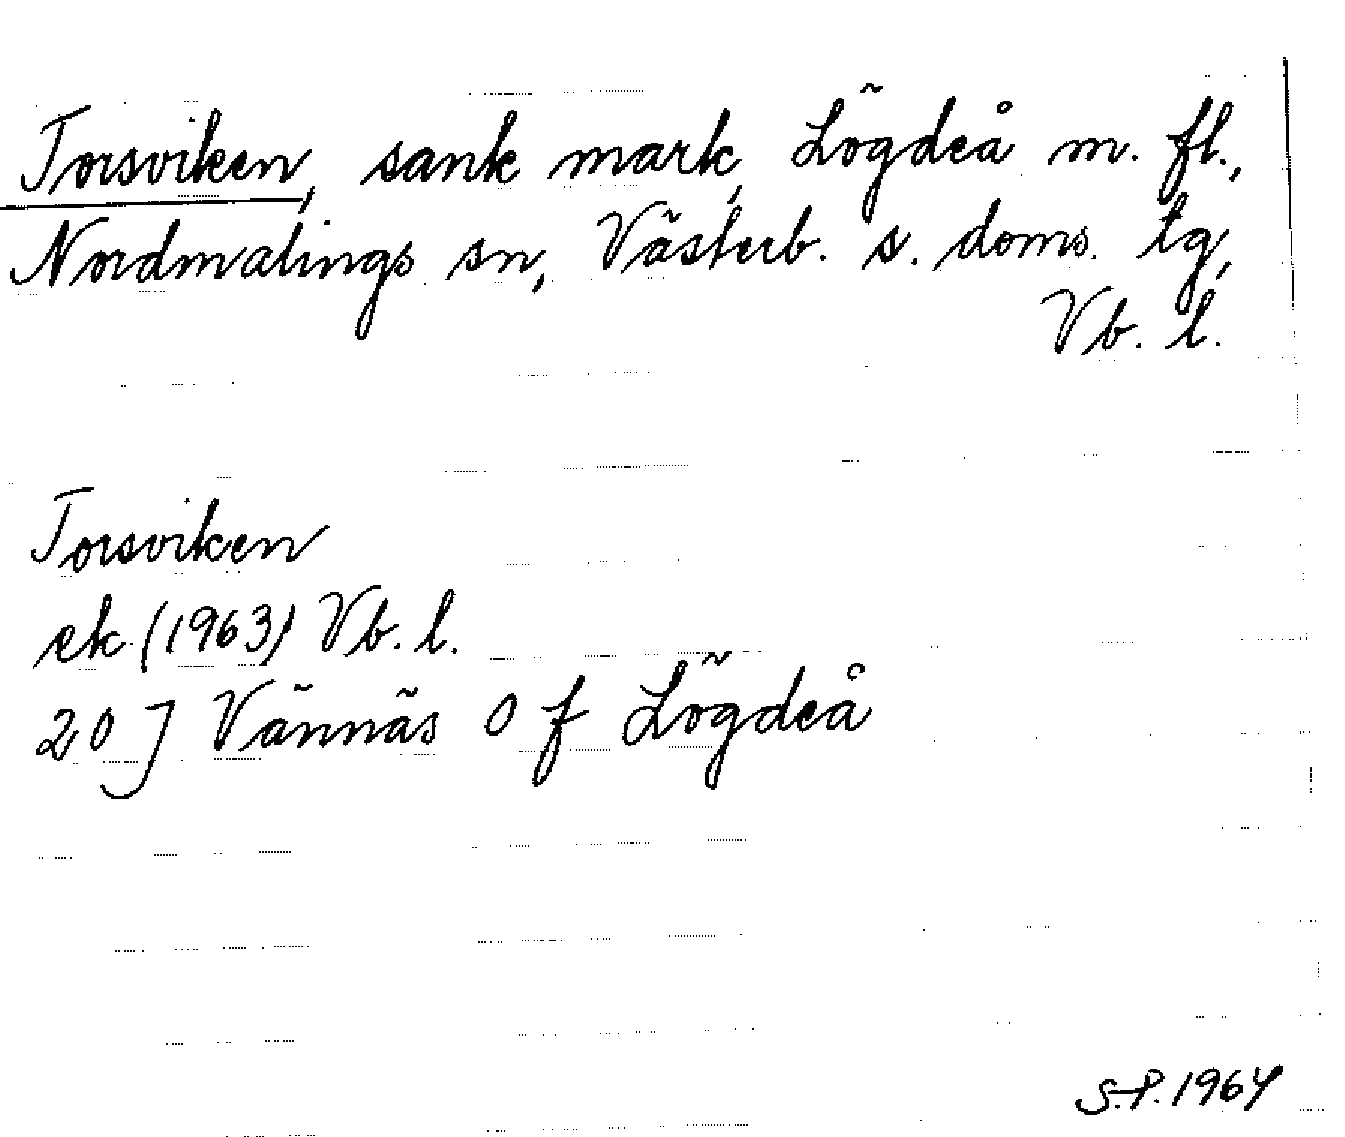 Torsviken, sank mark, Lögdeå m. fl.,
Nordmalings sn, Västerb. s. doms. tg,
Vb. l.
Torsviken
ek. (1963) Vb. l.
20 J Vännäs O f Lögdeå
S.P. 1964